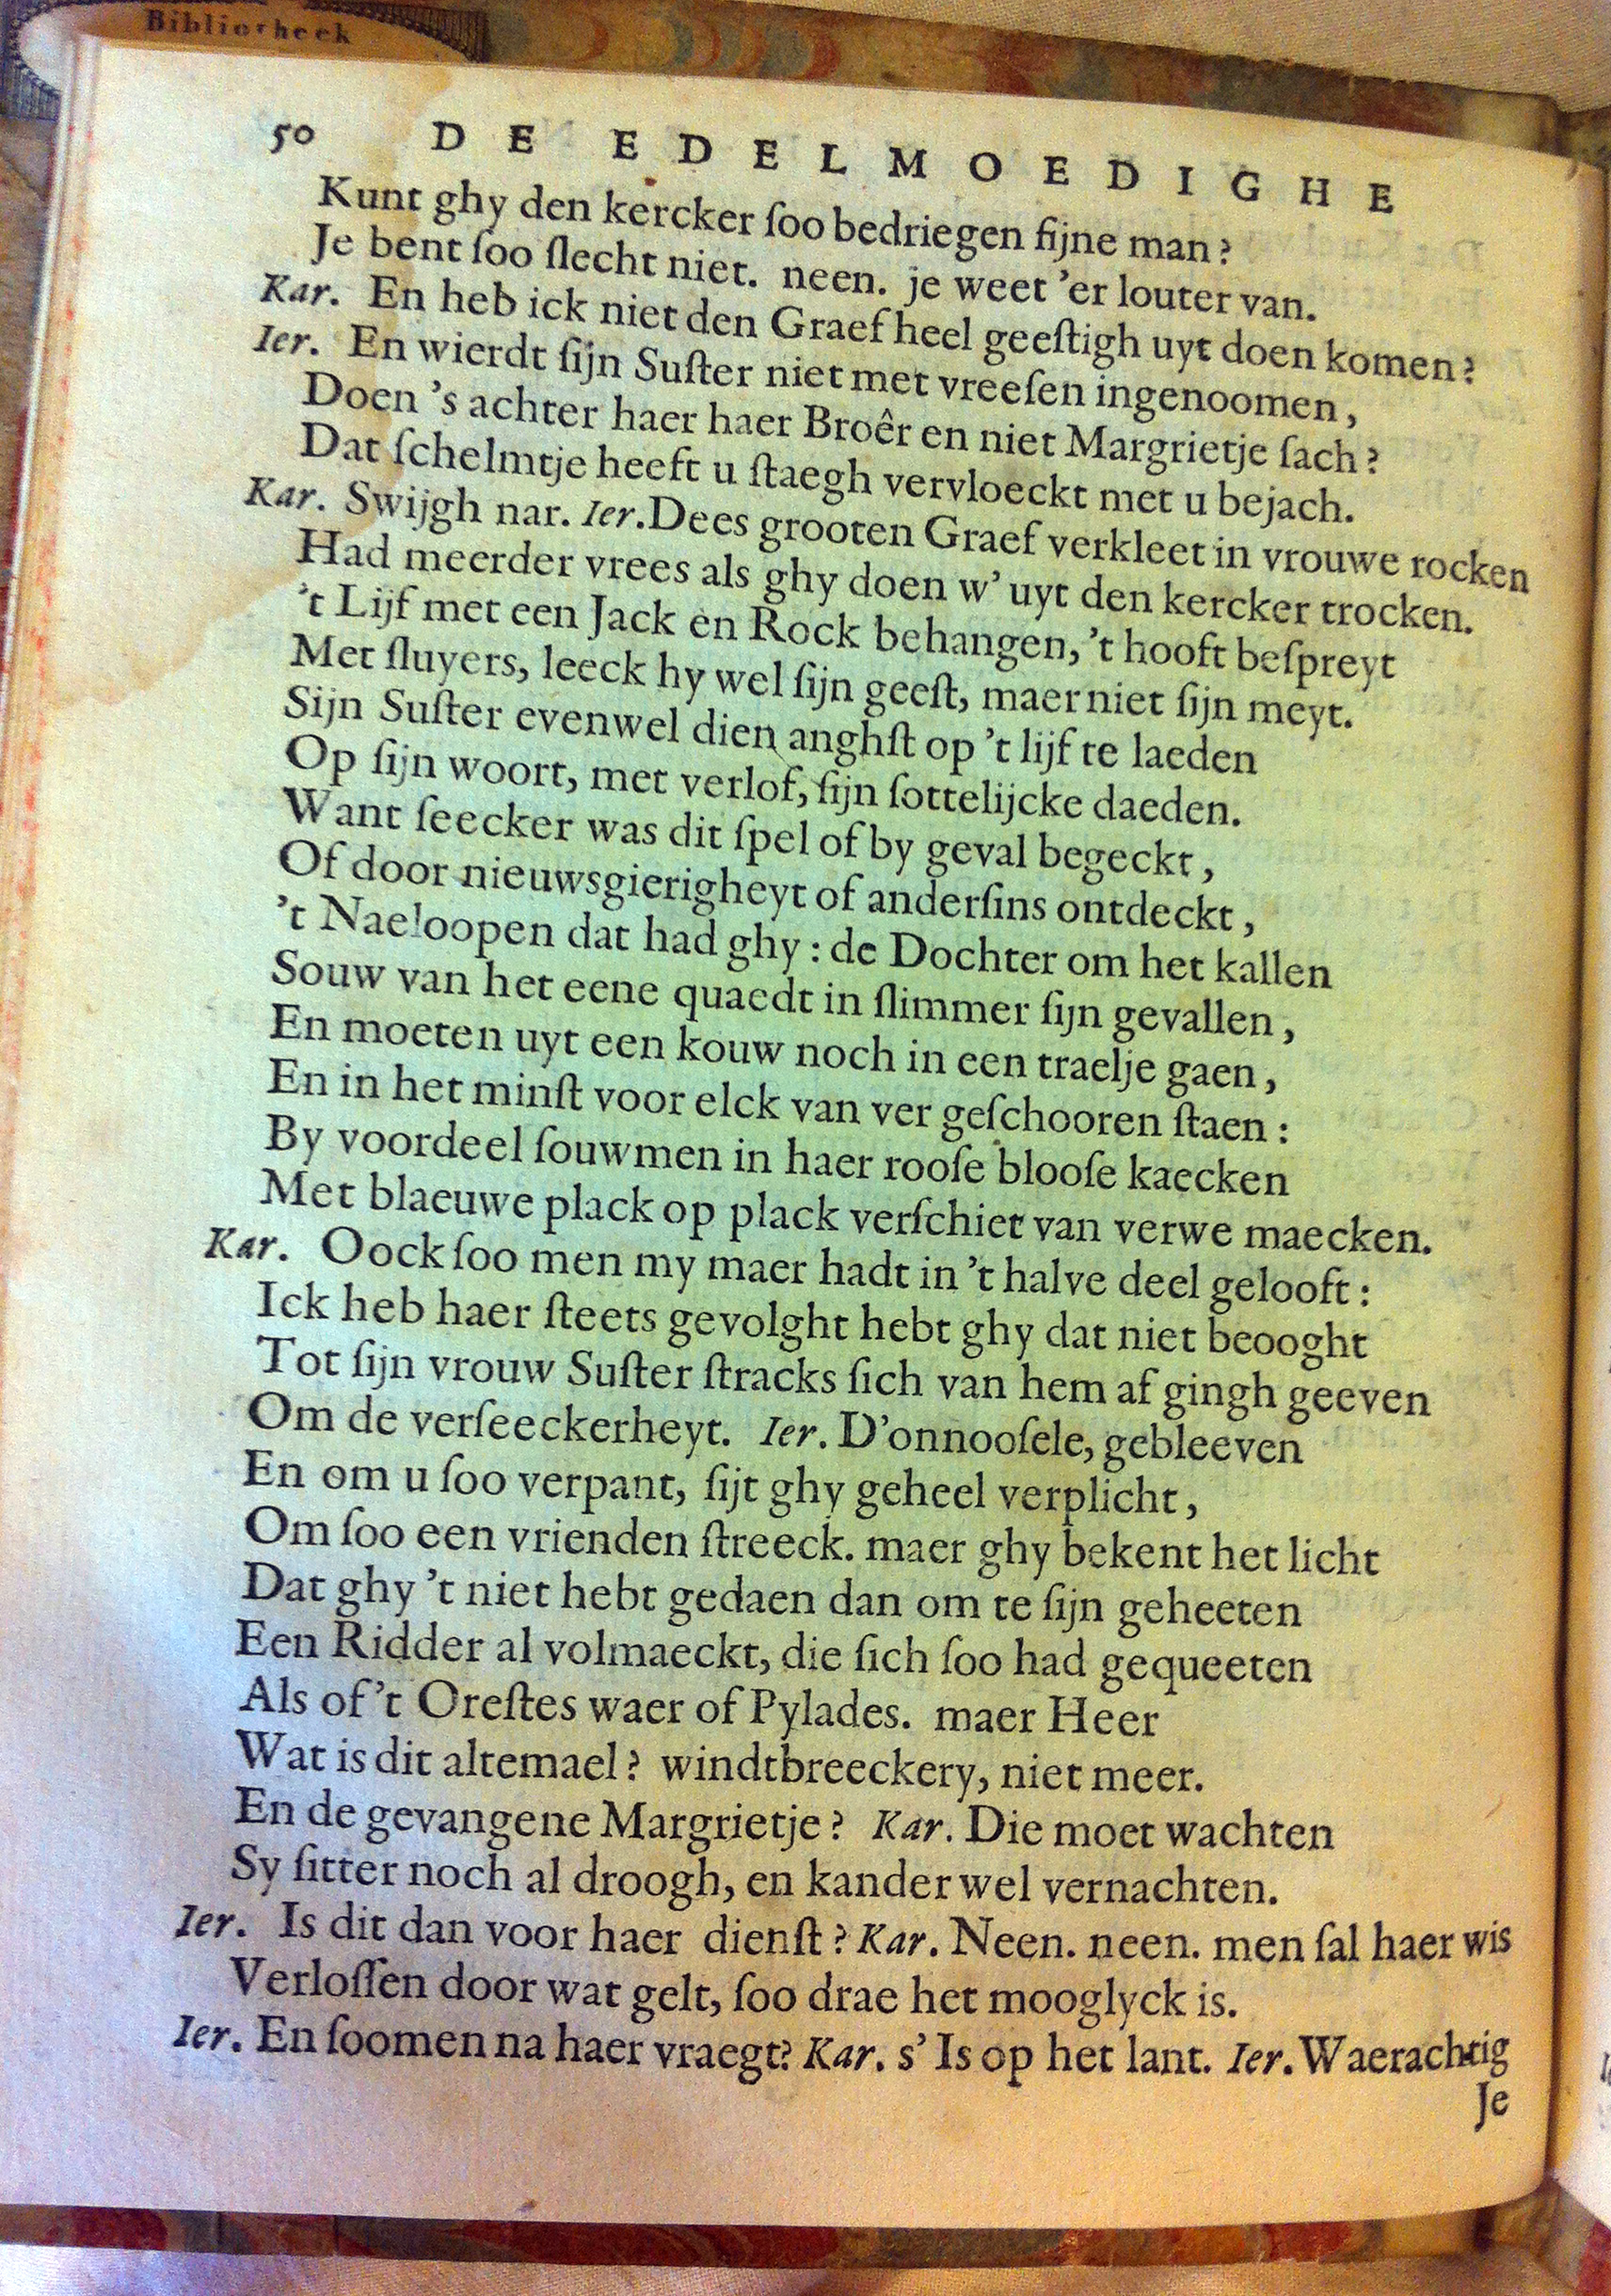 Bibliotheek
50 DE EDELMOEDIGHE
Kunt ghy den kercker ſoo bedriegen fijne man?
Je bent ſoo ſlecht niet. neen. je weet 'er louter van.
Kar. En heb ick niet den Graef heel geeſtigh uyt doen komen?
Ier. En wierdt ſijn Suſter niet met vreeſen ingenoomen,
Doen 's achter haer haer Broêr en niet Margrietje ſach?
Dat ſchelmtje heeft u ſtaegh vervloeckt met u bejach.
Kar. Swijgh nar. Ier. Dees grooten Graef verkleet in vrouwe rocken
Had meerder vrees als ghy doen w' uyt den kercker trocken.
't Lijf met een Jack en Rock behangen, 't hooft beſpreyt
Met ſluyers, leeck hy wel ſijn geeſt, maer niet ſijn meyt.
Sijn Suſter evenwel dien anghſt op 't lijf te laeden
Op ſijn woort, met verlof, ſijn ſottelijcke daeden.
Want ſeecker was dit ſpel of by geval begeckt,
Of door nieuwsgierigheyt of anderſins ontdeckt,
't Naeloopen dat had ghy: de Dochter om het kallen
Souw van het eene quaedt in ſlimmer ſijn gevallen,
En moeten uyt een kouw noch in een traelje gaen,
En in het minſt voor elck van ver geſchooren ſtaen:
By voordeel ſouwmen in haer rooſe blooſe kaecken
Met blaeuwe plack op plack verſchiet van verwe maecken.
Kar. Oock ſoo men my maer hadt in 't halve deel gelooft:
Ick heb haer ſteets gevolght hebt ghy dat niet beooght
Tot ſijn vrouw Suſter ſtracks ſich van hem af gingh geeven
Om de verſeeckerheyt. Ier. D'onnooſele, gebleeven
En om u ſoo verpant, ſijt ghy geheel verplicht,
Om ſoo een vrienden ſtreeck. maer ghy bekent het licht
Dat ghy 't niet hebt gedaen dan om te ſijn geheeten
Een Ridder al volmaeckt, die ſich ſoo had gequeeten
Als of 't Oreſtes waer of Pylades. maer Heer
Wat is dit altemael? windtbreeckery, niet meer.
En de gevangene Margrietje? Kar. Die moet wachten
Sy ſitter noch al droogh, en kander wel vernachten.
Ier. Is dit dan voor haer dienſt? Kar. Neen. neen. men ſal haer wis
Verloſſen door wat gelt, ſoo drae het mooglyck is.
Ier. En ſoomen na haer vraegt? Kar. s' Is op het lant. Ier. Waerachtig
Je